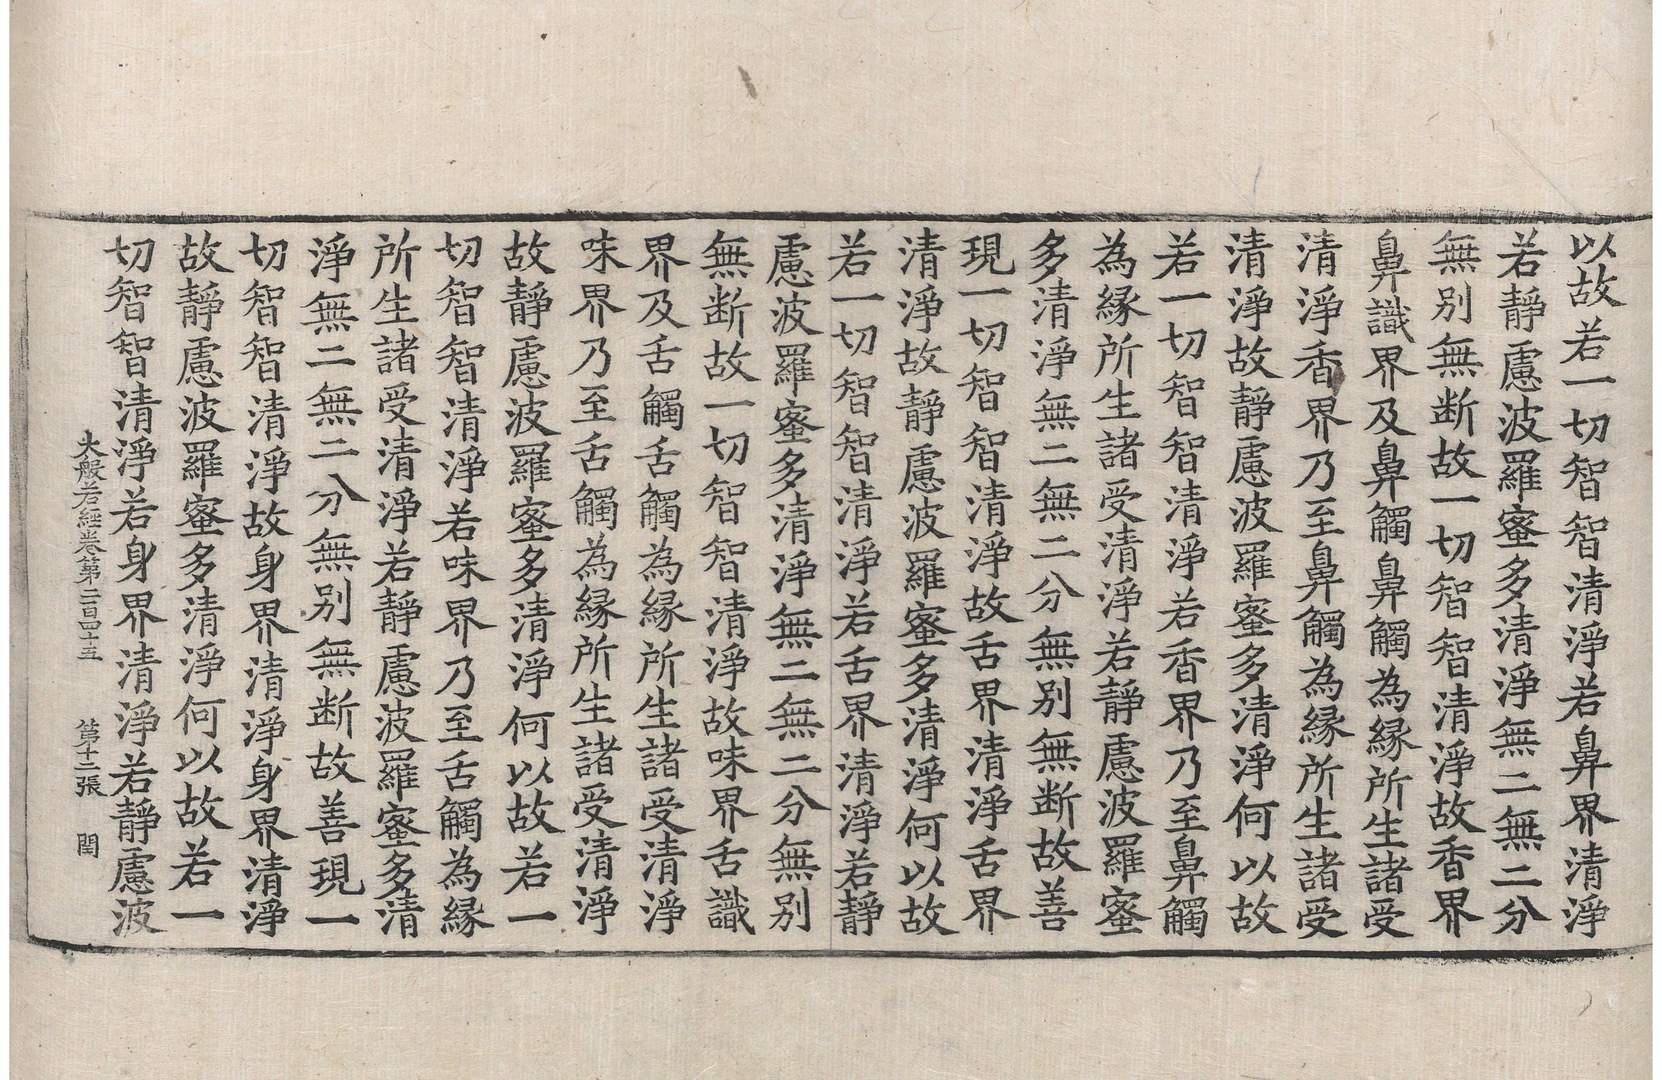 以故若一切智智清淨若鼻界清淨
若靜慮波羅蜜多清淨無二無二分
無別無断故一切智智清淨故香界
鼻識界及鼻觸鼻觸為緣所生諸受
清淨香界乃至鼻觸為緣所生諸受
清淨故靜慮波羅蜜多清淨何以故
若一切智智清淨若香界乃至鼻觸
為緣所生諸受清淨若靜慮波羅蜜
多清淨無二無二分無別無断故善
現一切智智清淨故舌界清淨舌界
清淨故靜慮波羅蜜多清淨何以故
若一切智智清淨若舌界清淨若靜
慮波羅蜜多清淨無二無二分無別
無断故一切智智清淨故味界舌識
界及舌觸舌觸為緣所生諸受清淨
味界乃至舌觸為緣所生諸受清淨
故靜慮波羅蜜多清淨何以故若一
切智智清淨若味界乃至舌觸為緣
所生諸受清淨若靜慮波羅蜜多清
淨無二無二分無別無断故善現一
切智智清淨故身界清淨身界清淨
故靜慮波羅蜜多清淨何以故若一
切智智清淨若身界清淨若靜慮波
大般若經卷第二百四十五 第十二張 閏